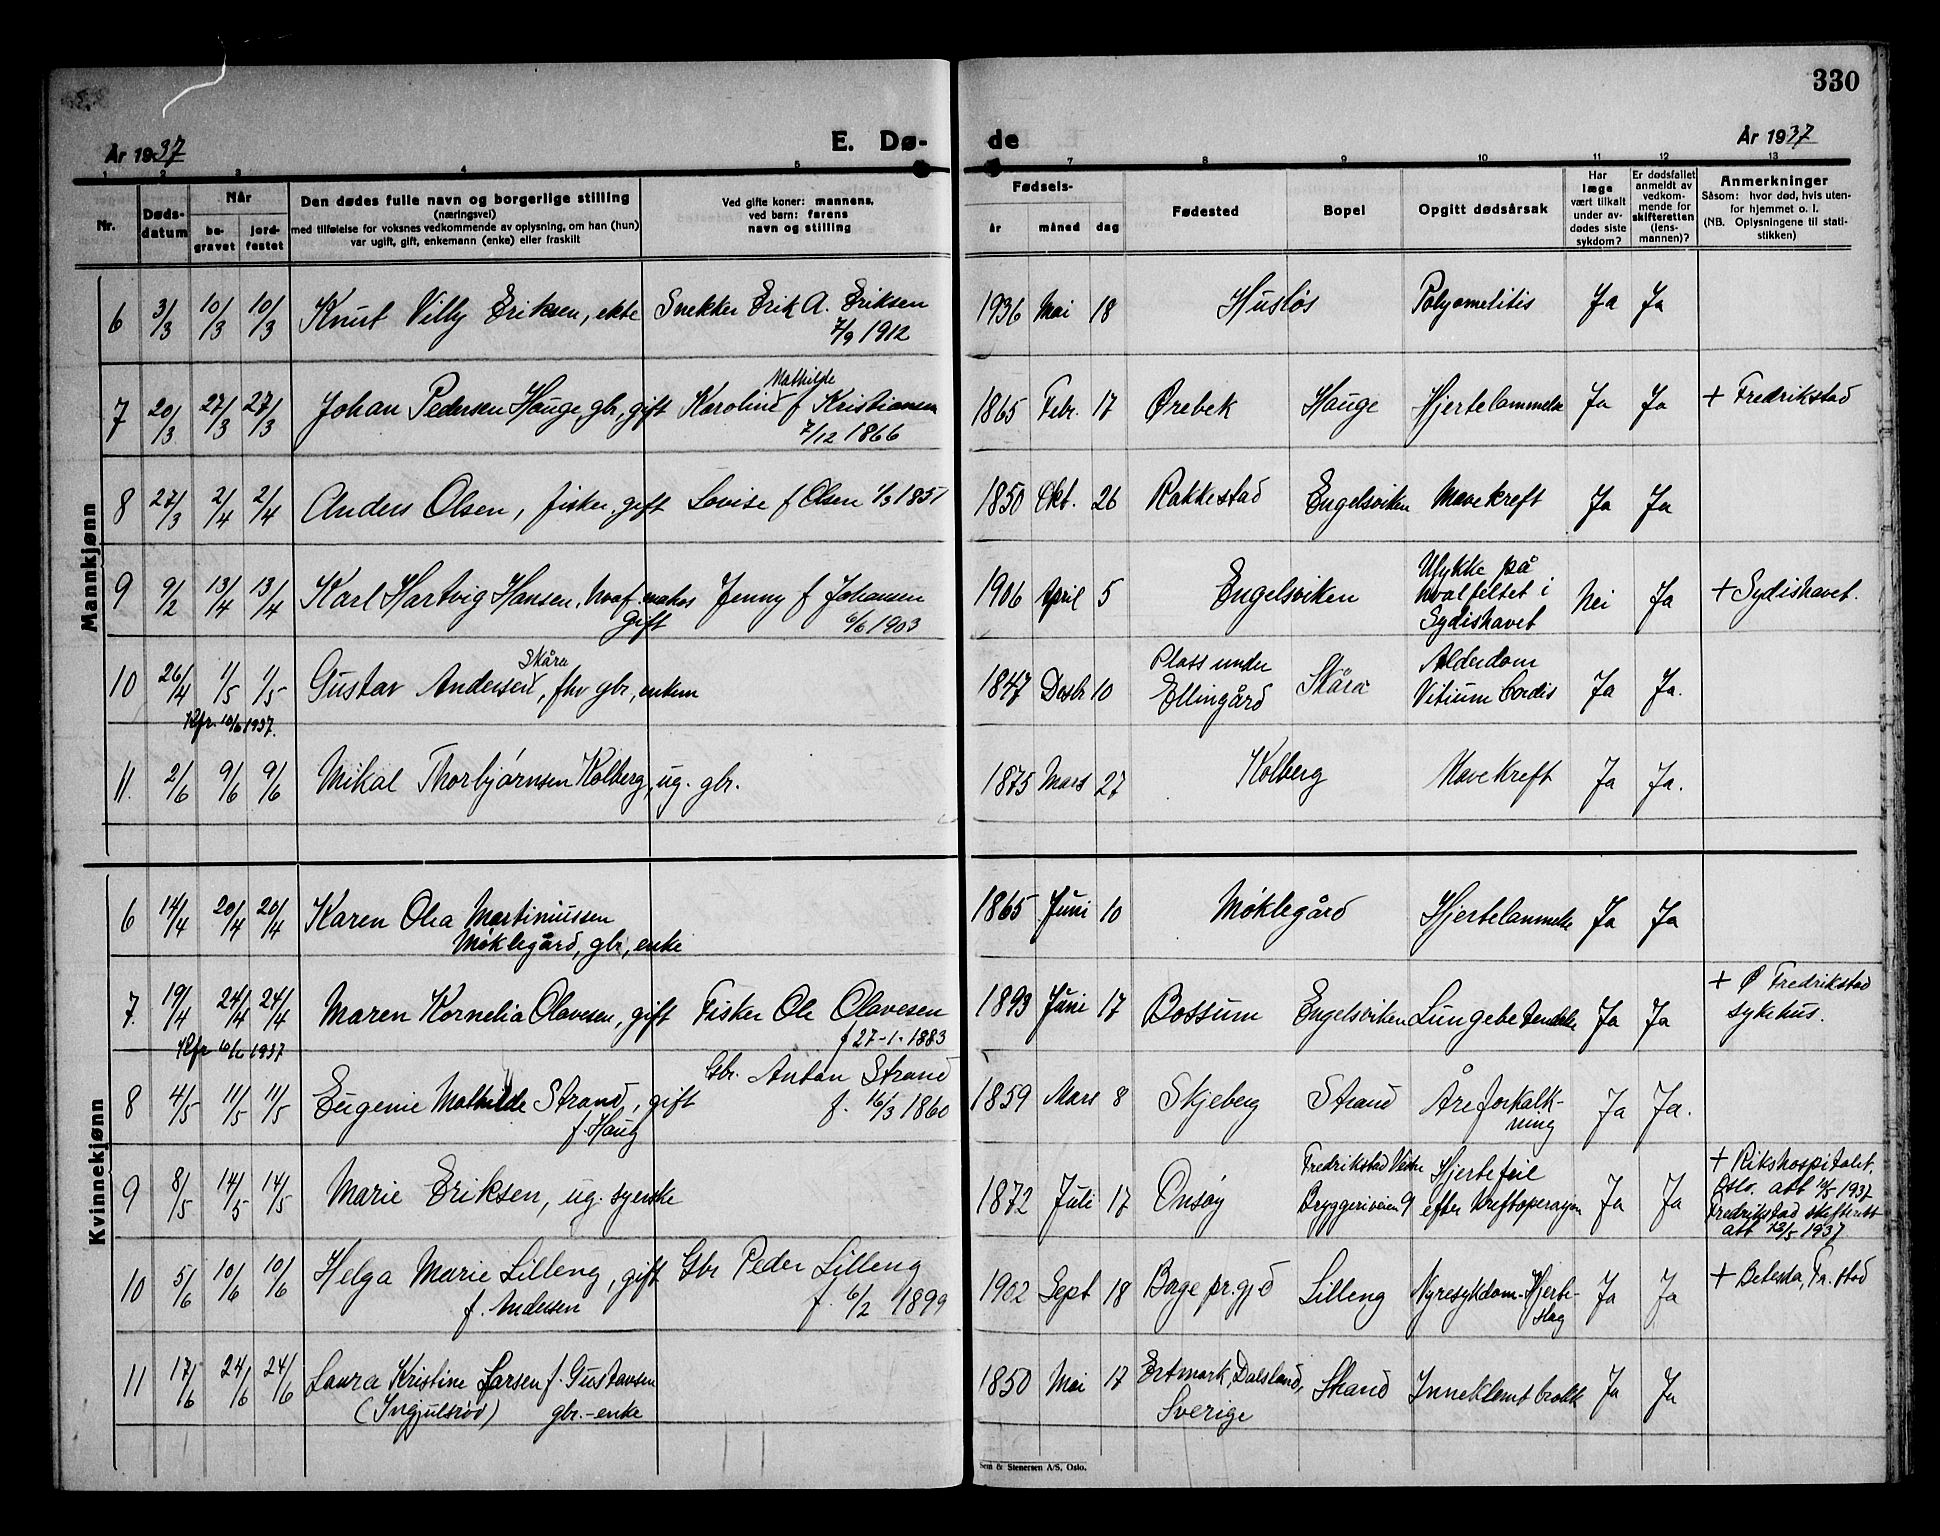 330
År 1937
E. Dø-
de
År 1937
1 2 3 4 5 7 8 9 10 11 12 13
Nr.
Døds-
datum
Når
be-
gravet
jord-
festet
Den dødes fulle navn og borgerlige stilling
(næringsvei)
med tilføielse for voksnes vedkommende av oplysning, om han (hun)
var ugift, gift, enkemann (enke) eller fraskilt
Ved gifte koner: mannens,
ved barn: farens
navn og stilling
Fødsels-
år måned dag
Fødested
Bopel
Opgitt dødsårsak
Har
læge
vært tilkalt
under av-
dødes siste
sykdom?
Er dødsfallet
anmeldt av
vedkom-
mende for
skifteretten
(lens-
mannen)?
Anmerkninger
Såsom: hvor død, hvis uten-
for hjemmet o. l.
(NB. Oplysningene til stati-
stikken)
Mankjønn
6 3/3 10/3 10/3 Knut Villy Eriksen, ekte Snekker Erik A. Eriksen 1936 Mai 18 Husløs Polyomelitis Ja Ja
7/9 1912
Mathilde
7 20/3 27/3 27/3 Johan Pedersen Hauge, gbr, gift Karoline f Kristiansen 1865 Febr. 17 Ørebek Hauge Hjertelammelse Ja Ja + Fredrikstad
7/12 1866
8 27/3 2/4 2/4 Anders Olsen, fisker, gift Lovise f Olsen 1/3 1851 1850 Okt. 26 Rakkestad Engelsviken Mavekreft Ja Ja
9 9/2 13/4 13/4 Karl Hartvig Hansen, hvalf. maker Jenny f Johansen 1906 April 5 Engelsviken Ulykke på
hvalfeltet i Nei Ja + Sydishavet.
gift 6/6 1903 Sydishavet
Skåra
10 26/4 1/5 1/5 Gustav Andersen, fhv gbr, enkem 1847 Desbr 10 Plass under
Ellingård Skåra Alderdom
Vitium Cordis Ja Ja.
Kfr. 10/6 1937.
11. 2/6 9/6 9/6 Mikal Thorbjørnsen Kolberg, ug. gbr. 1875 Mars 27 Kolberg Mavekreft Ja Ja.
Kvinnekjønn
6 14/4 20/4 20/4 Karen Olea Martiniussen 1865 Juni 10 Møklegård Hjertelammelse Ja Ja
Møklegård, gbr, enke
7. 19/4 24/4 24/4 Maren Kornelia Olavesen, gift Fisker Ole Olavesen 1893 Juni 17 Bossum Engelsviken Lungebetendelse Ja Ja + Ø Fredrikstad
sykehus.
f 27-1-1883
Kfr 10/6 1937
8 4/5 11/5 11/5 Eugenie Mathilde Strand, gift Gbr. Anton Strand 1859 Mars 8 Skjeberg Strand Åreforkalk-
ning Ja Ja.
f. Haug f. 16/3 1860
9 8/5 14/5 14/5 Marie Eriksen, ug. syerske 1872 Juli 17 Onsøy Fredrikstad Vestre
Bryggeriveien 9 Hjertefeil
efter kreftoperasjon Ja Ja + Rikshospitalet,
Oslo. att 11/5 1937
Fredrikstad skifterett
att 13/5 1937.
10 5/6 10/6 10/6 Helga Marie Lilleng, gift Gbr Peder Lilleng 1902 Sept 18 Borge pr.gj.d Lilleng Nyresykdom-Hjerte-
slag Ja Ja + Betesta, Fr.stad
f. Andersen f. 6/2 1899
11 17/6 24/6 24/6 Laura Kristine Larsen f. Gustavsen 1850 Mai 17 Ertmark, Dalsland,
Sverige Strand Inneklemt brokk Ja Ja
(Ingjulsrød) gbr.-enke
Sem & Stenersen A/S, Oslo.